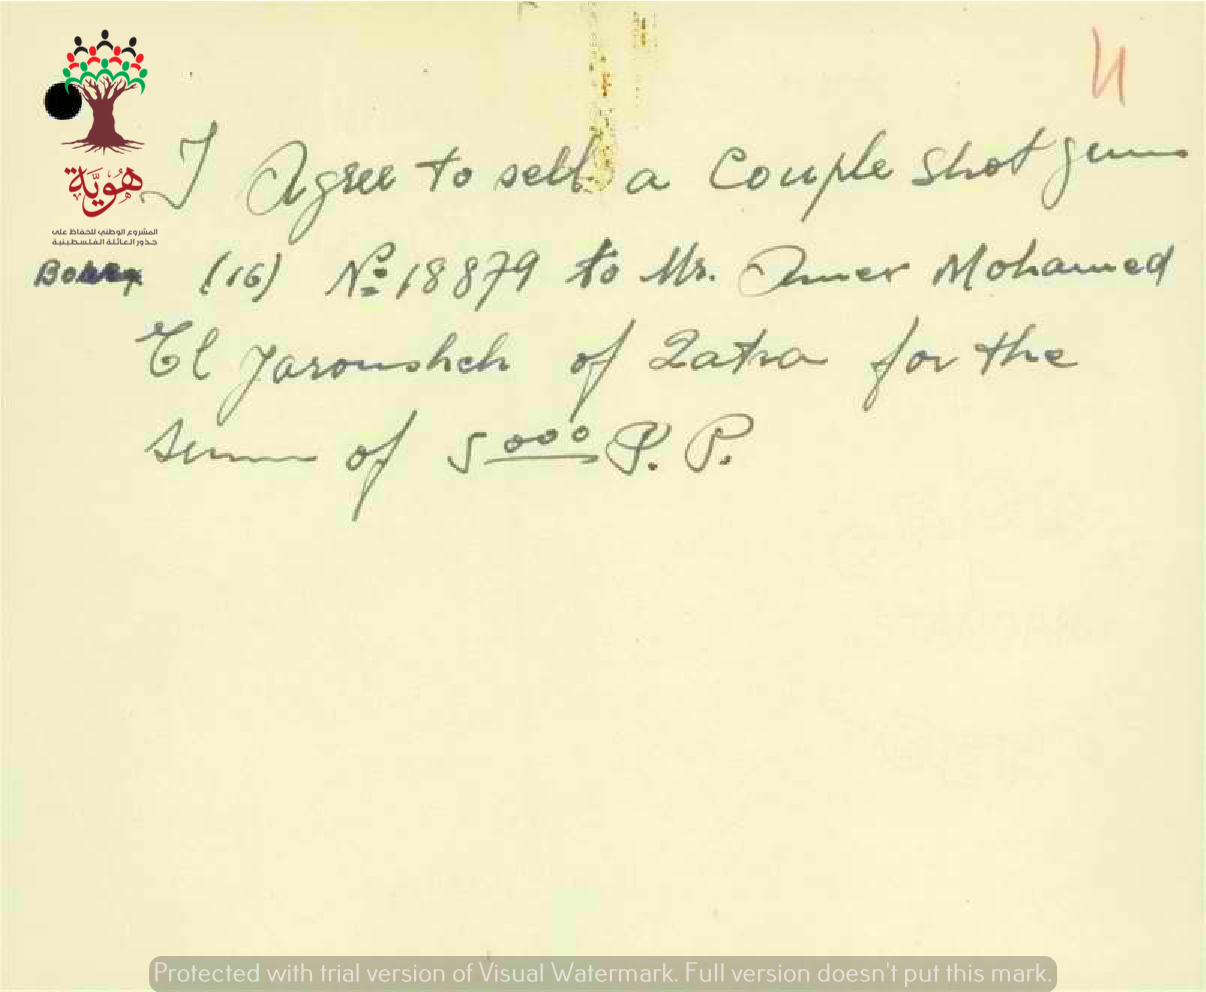 11
هوية
المشروع الوطني للحفاظ على
جذور العائلة الفلسطينية
I Agree to sell a Couple Shot guns
(16) Nº 18879 to Mr. Omer Mohamed
El Jarousheh of Zatra for the
sum of 5000 P. P.
Protected with trial version of Visual Watermark. Full version doesn't put this mark.